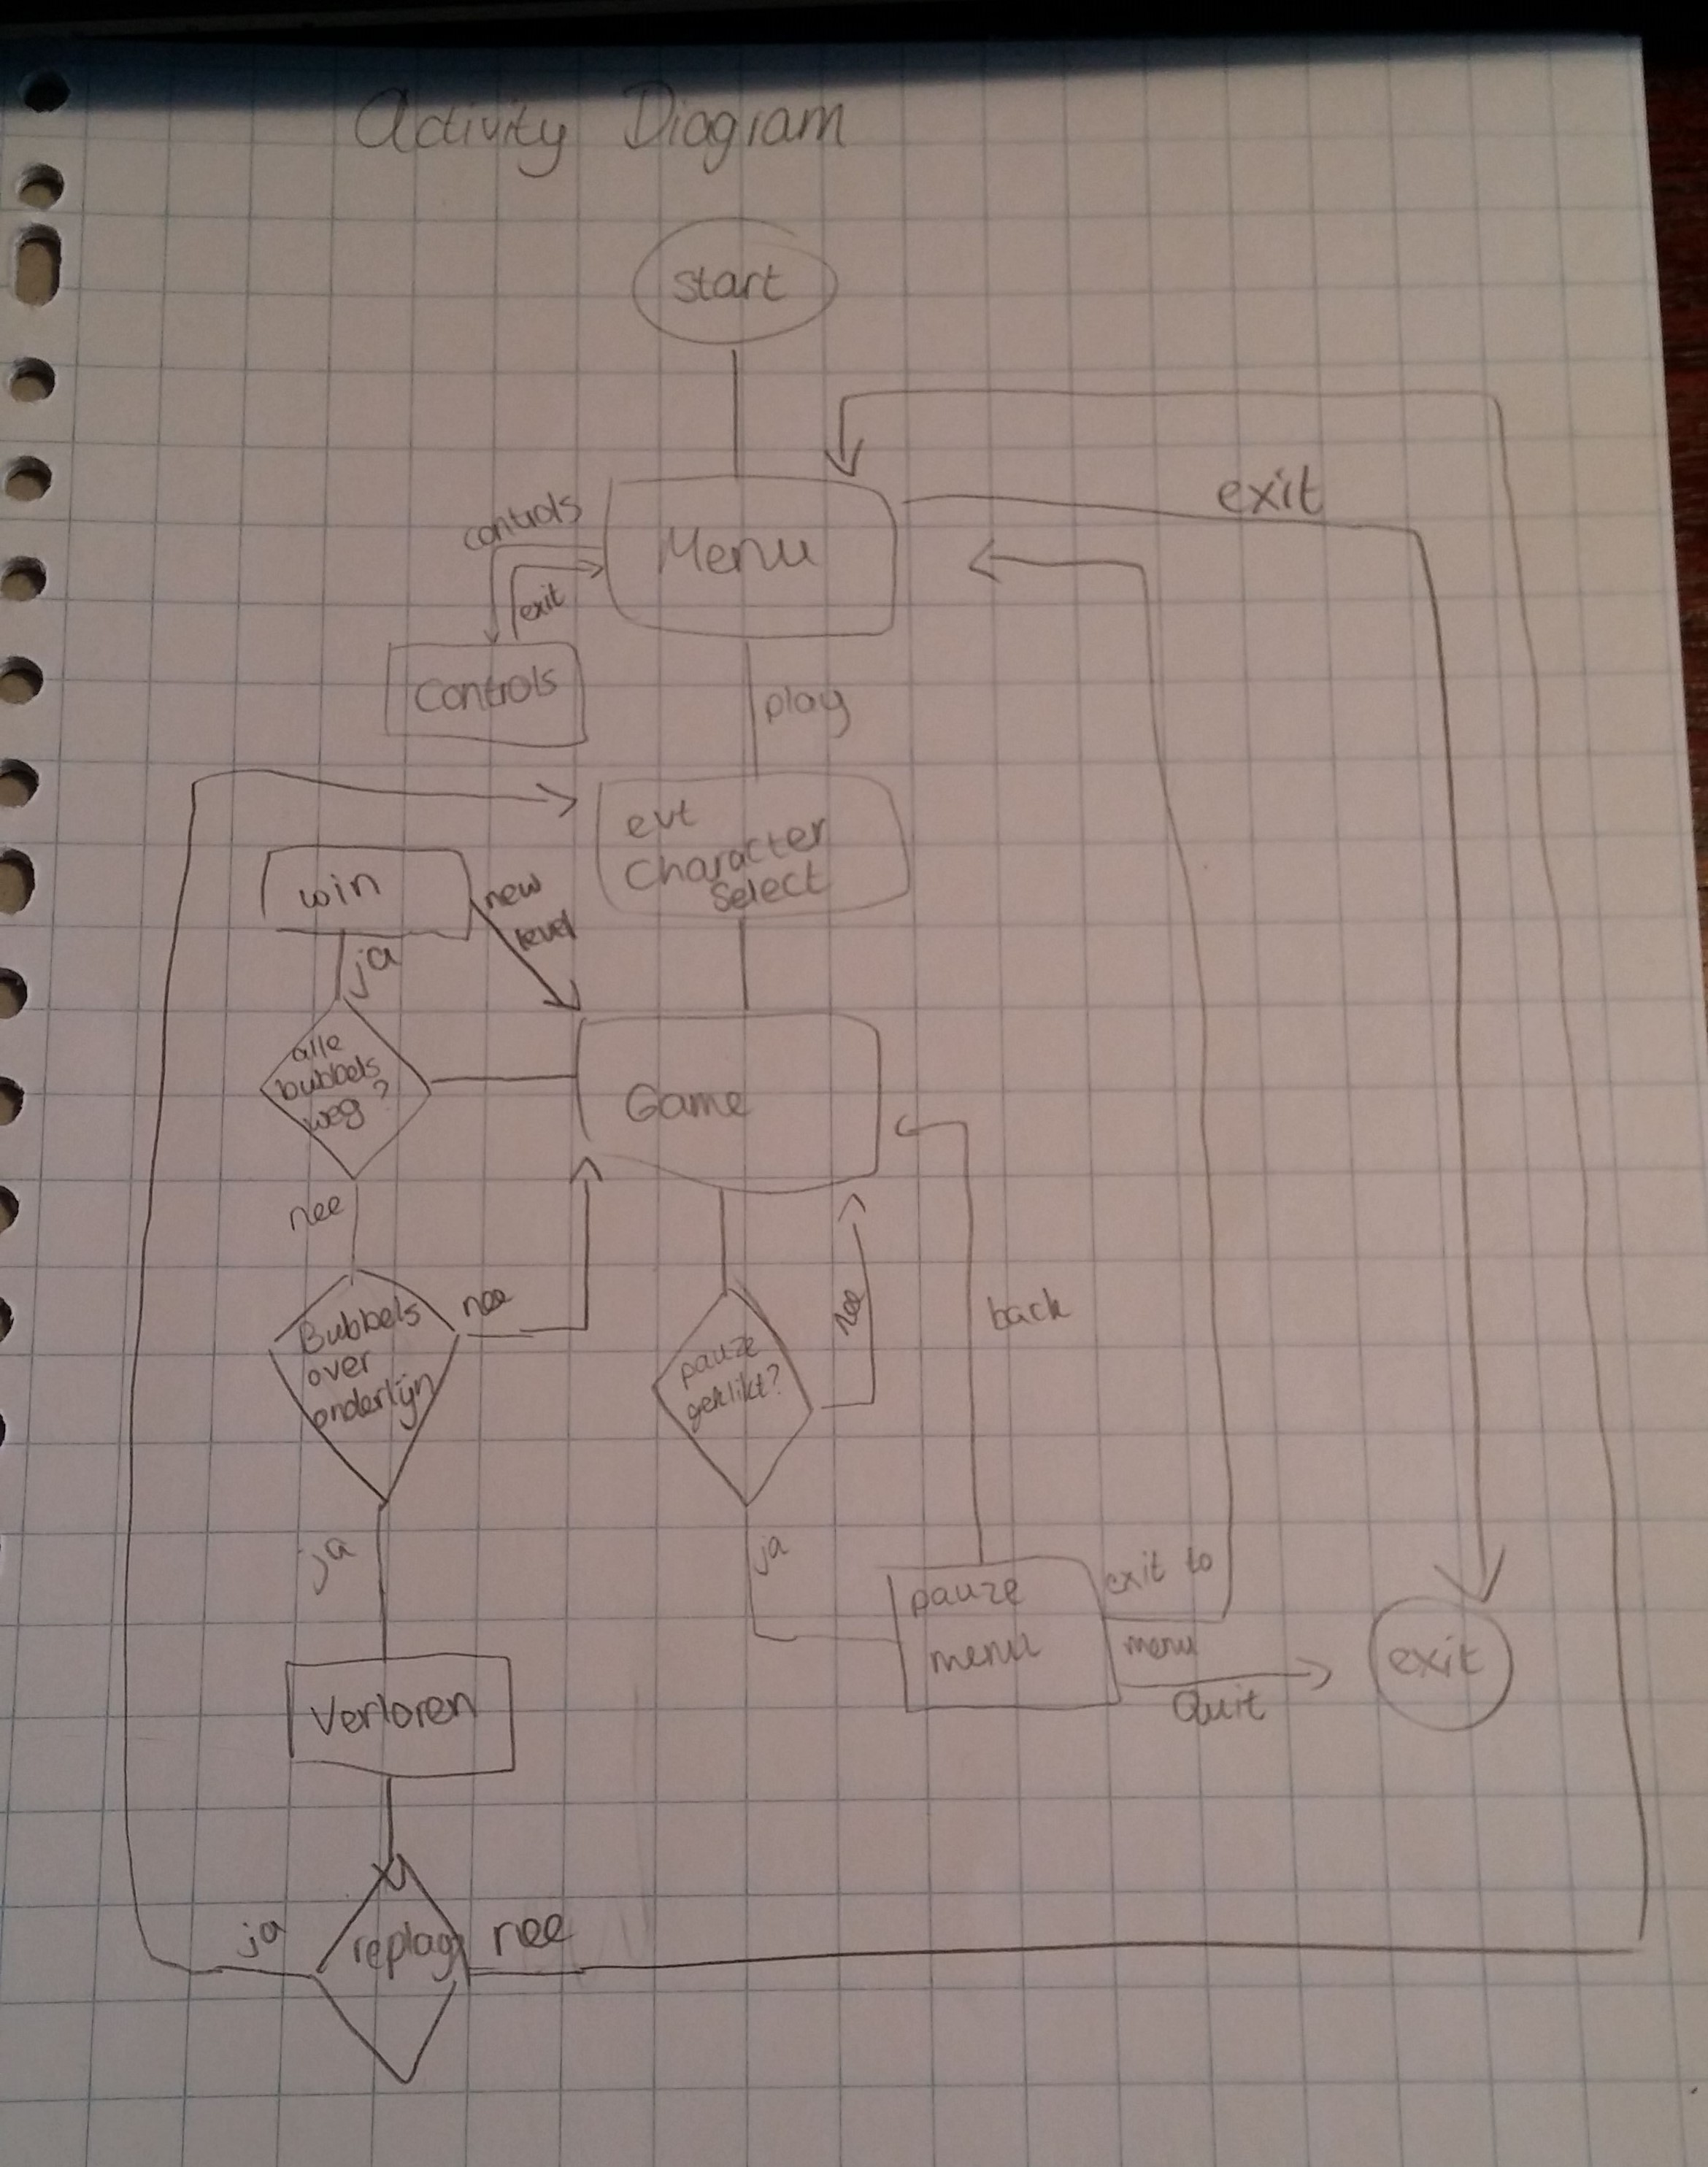 Activity Diagram
start
exit
controls
Menu
exit
Controls
play
evt
Character
Select
win
new
level
ja
alle
bubbels
weg?
Game
nee
Bubbels
over
onderlijn
nee
pauze
geklikt?
nee
back
ja
ja
pauze
menu
exit to
menu
Quit
exit
Verloren
ja
replay
nee